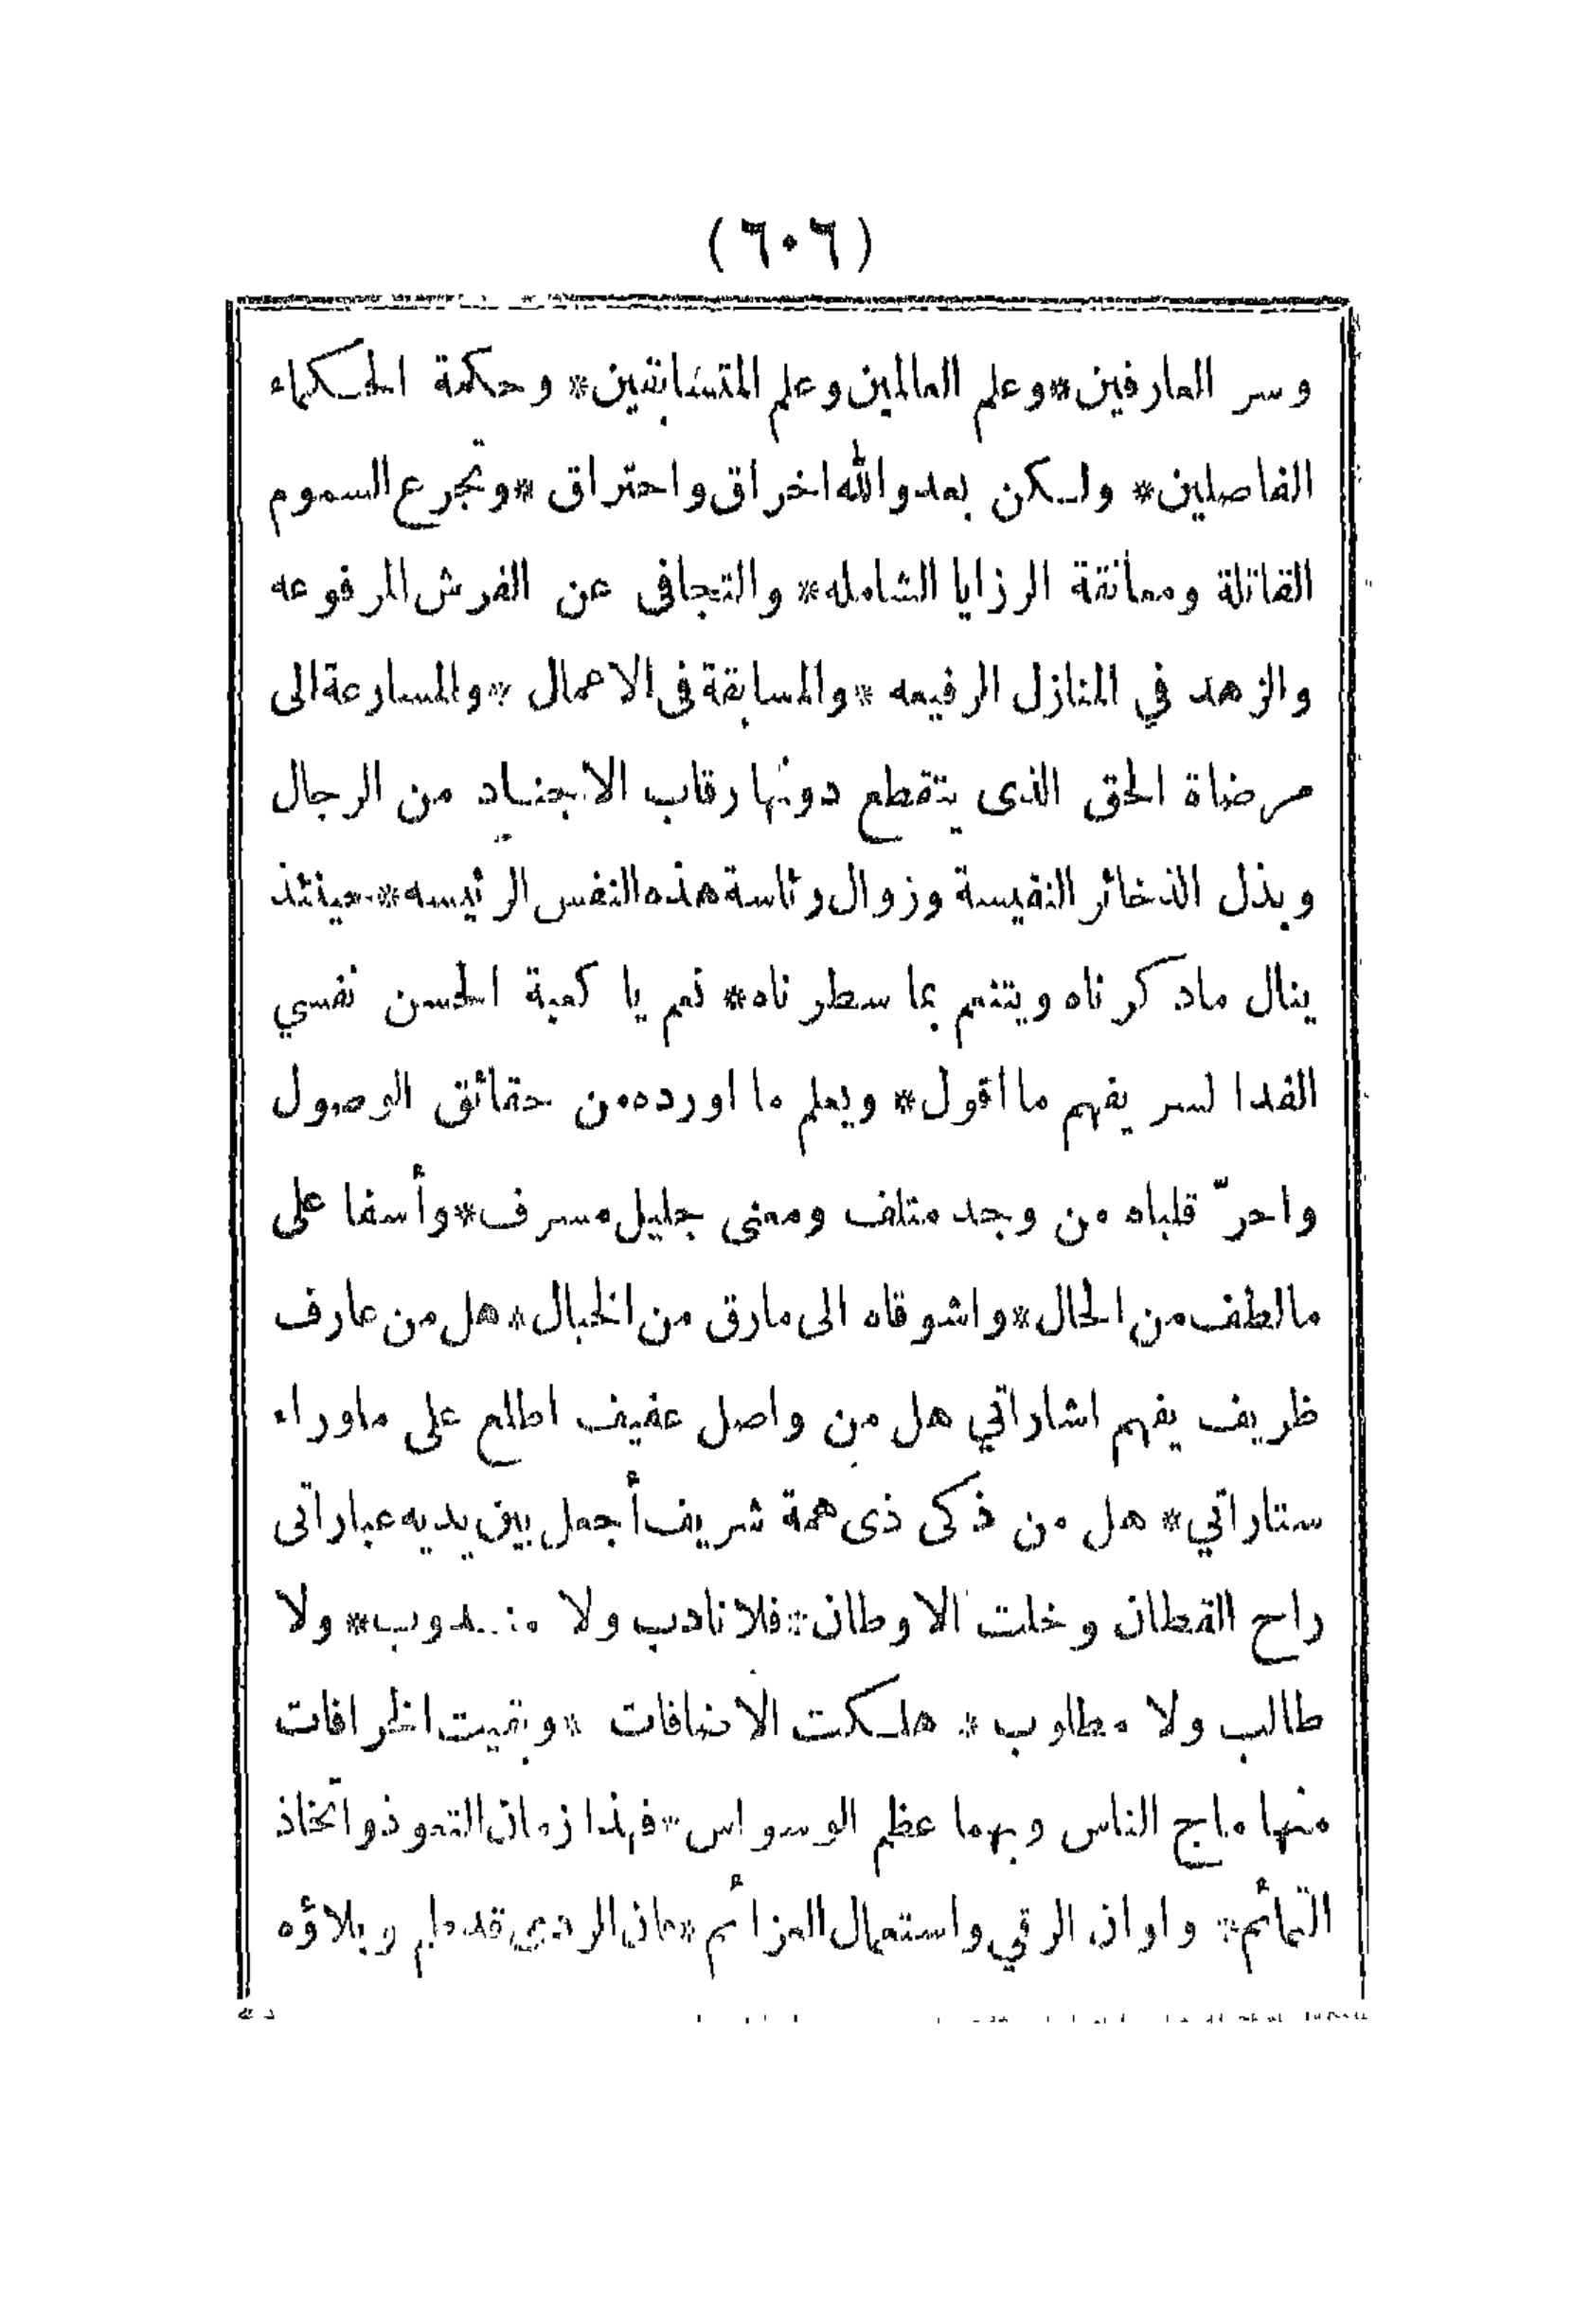 (٦٠٦)
وسر العارفين*وعلم العالمين وعلم المتسابقين* وحكمة الحكماء
الفاصلين* ولكن بعد والله اخراق واحتراق *وتجرع السموم
القاتلة ومعانقة الرزايا الشامله* والتجافى عن الفرش المرفوعه
والزهد في المنازل الرفيعه *والمسابقة فى الاعمال *والمسارعة الى
مرضاة الحق الذى يتقطع دونها رقاب الا من الرجال
وبذل الذخائر النفيسة وزوال رئاسة هذه النفس الرئيسه*حينئذ
ينال ماذكرناه ويتنعم بما سطرناه* نعم يا كعبة الحسن نفسي
الفدا لسر يفهم ما اقول* ويعلم ما اورده من حقائق الوصول
واحرّ قلباه من وجد متلف ومعنى جليل مسرف*وأسفا على
مالطف من الحال*واشوقاه الى مارق من الخبال*هل من عارف
ظريف يفهم اشاراتي هل من واصل عفيف اطلع على ماوراء
ستاراتي* هل من ذكى ذى همة شريف أجعل بين يديه عباراتى
راح القطان وخلت الاوطان*فلا نادب ولا مندوب* ولا
طالب ولا مطلوب * هلكت الاضافات *وبقيت الخرافات
منها ماج الناس وبهما عظم الوسواس*فهذا زمان التعوذ واتخاذ
التمائم* واوان الرقي واستعمال العزائم* الردى قد وبلاؤه